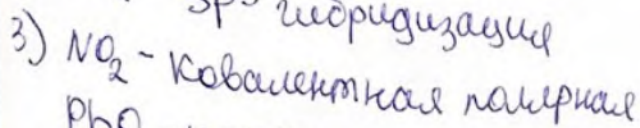 sp³ гибридизация
3) NO₂ - ковалентная полярная
PbO